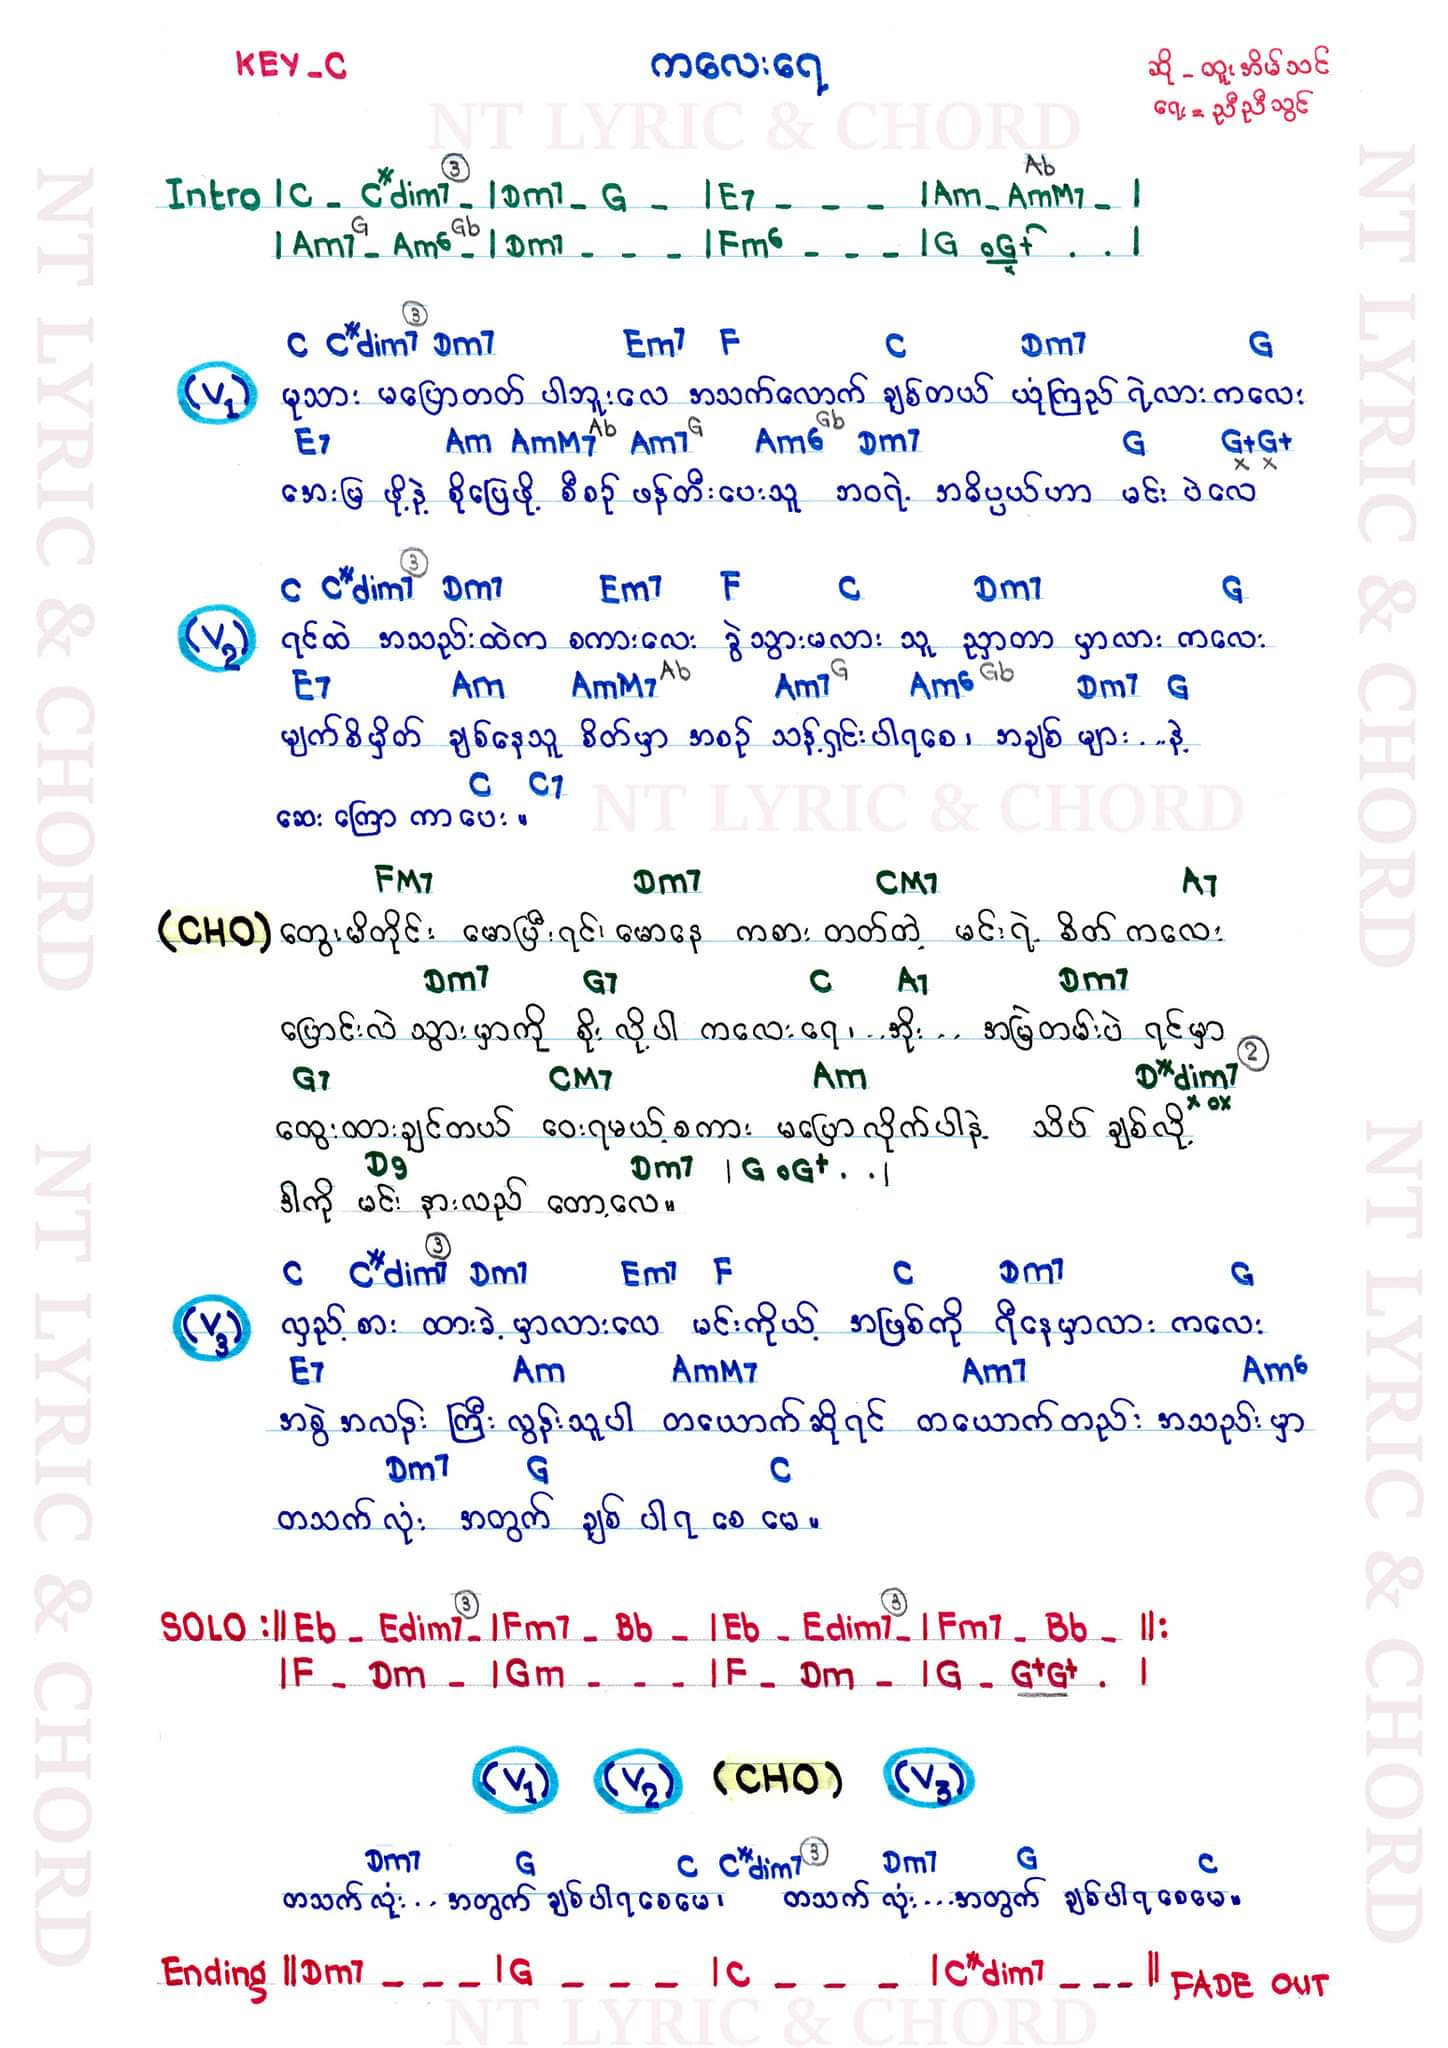 KEY_C
ကလေးရေ
ဆို - ထူးအိမ်သင်
ရေး = ညီညီသွင်
NT LYRIC & CHORD
Intro |C - C#dim7 ③ - |Dm7 - G - |E7 - - - |Am - AmM7 Ab - |
|Am7 G - Am6 Gb - |Dm7 - - - |Fm6 - - - |G oG+ . . |
C C#dim7 ③ Dm7 Em7 F C Dm7 G
(V1) မုသား မပြောတတ် ပါဘူးလေ အသက်လောက် ချစ်တယ် ယုံကြည် ရဲ့လား ကလေး
E7 Am AmM7 Ab Am7 G Am6 Gb Dm7 G G+G+
အေးမြ ဖို့နဲ့ စိုပြေဖို့ စီစဉ် ဖန်တီးပေးသူ ဘဝရဲ့ အဓိပ္ပယ်ဟာ မင်း ပဲလေ
C C#dim7 ③ Dm7 Em7 F C Dm7 G
(V2) ရင်ထဲ အသည်းထဲက စကားလေး ခွဲသွားမလား သူ ညှာတာ မှာလား ကလေး
E7 Am AmM7 Ab Am7 G Am6 Gb Dm7 G
မျက်စိမှိတ် ချစ်နေသူ စိတ်မှာ အစဉ် သန့်ရှင်းပါရစေ၊ အချစ် များ...နဲ့
C C7
ဆေး ကြော ကာ ပေး ။
NT LYRIC & CHORD
FM7 Dm7 CM7 A7
(CHO) တွေးမိတိုင်း မောပြီးရင်၊ မောနေ ကစား တတ်တဲ့ မင်းရဲ့ စိတ် ကလေး
Dm7 G7 C A7 Dm7
ပြောင်းလဲ သွားမှာကို စိုး လို့ပါ ကလေးရေ၊...အိုး... အမြဲတမ်းပဲ ရင်မှာ
G7 CM7 Am D#dim7 ②
ထွေးထားချင်တယ် ဝေးရမယ့်စကား မပြောလိုက်ပါနဲ့ သိပ် ချစ်လို့
D9 Dm7 |G oG+ . . |
ဒါကို မင်း နားလည် တော့လေ။
C C#dim7 ③ Dm7 Em7 F C Dm7 G
(V3) လှည့်စား ထားခဲ့ မှာလားလေ မင်းကိုယ့် အဖြစ်ကို ရီနေမှာလား ကလေး
E7 Am AmM7 Am7 Am6
အစွဲ အလန်း ကြီး လွန်းသူပါ တယောက်ဆိုရင် တယောက်တည်း အသည်းမှာ
Dm7 G C
တသက် လုံး အတွက် ချစ် ပါ ရ စေ မေ ။
SOLO :||Eb - Edim7 ③ - |Fm7 - Bb - |Eb - Edim7 ③ - |Fm7 - Bb - ||:
|F - Dm - |Gm - - - |F - Dm - |G - G+G+ . |
(V1) (V2) (CHO) (V3)
Dm7 G C C#dim7 ③ Dm7 G C
တသက် လုံး... အတွက် ချစ်ပါရစေမေ၊ တသက် လုံး...အတွက် ချစ်ပါရစေမေ။
Ending ||Dm7 - - - |G - - - |C - - - |C#dim7 - - - || FADE OUT
NT LYRIC & CHORD
NT LYRIC & CHORD
NT LYRIC & CHORD
NT LYRIC & CHORD
NT LYRIC & CHORD